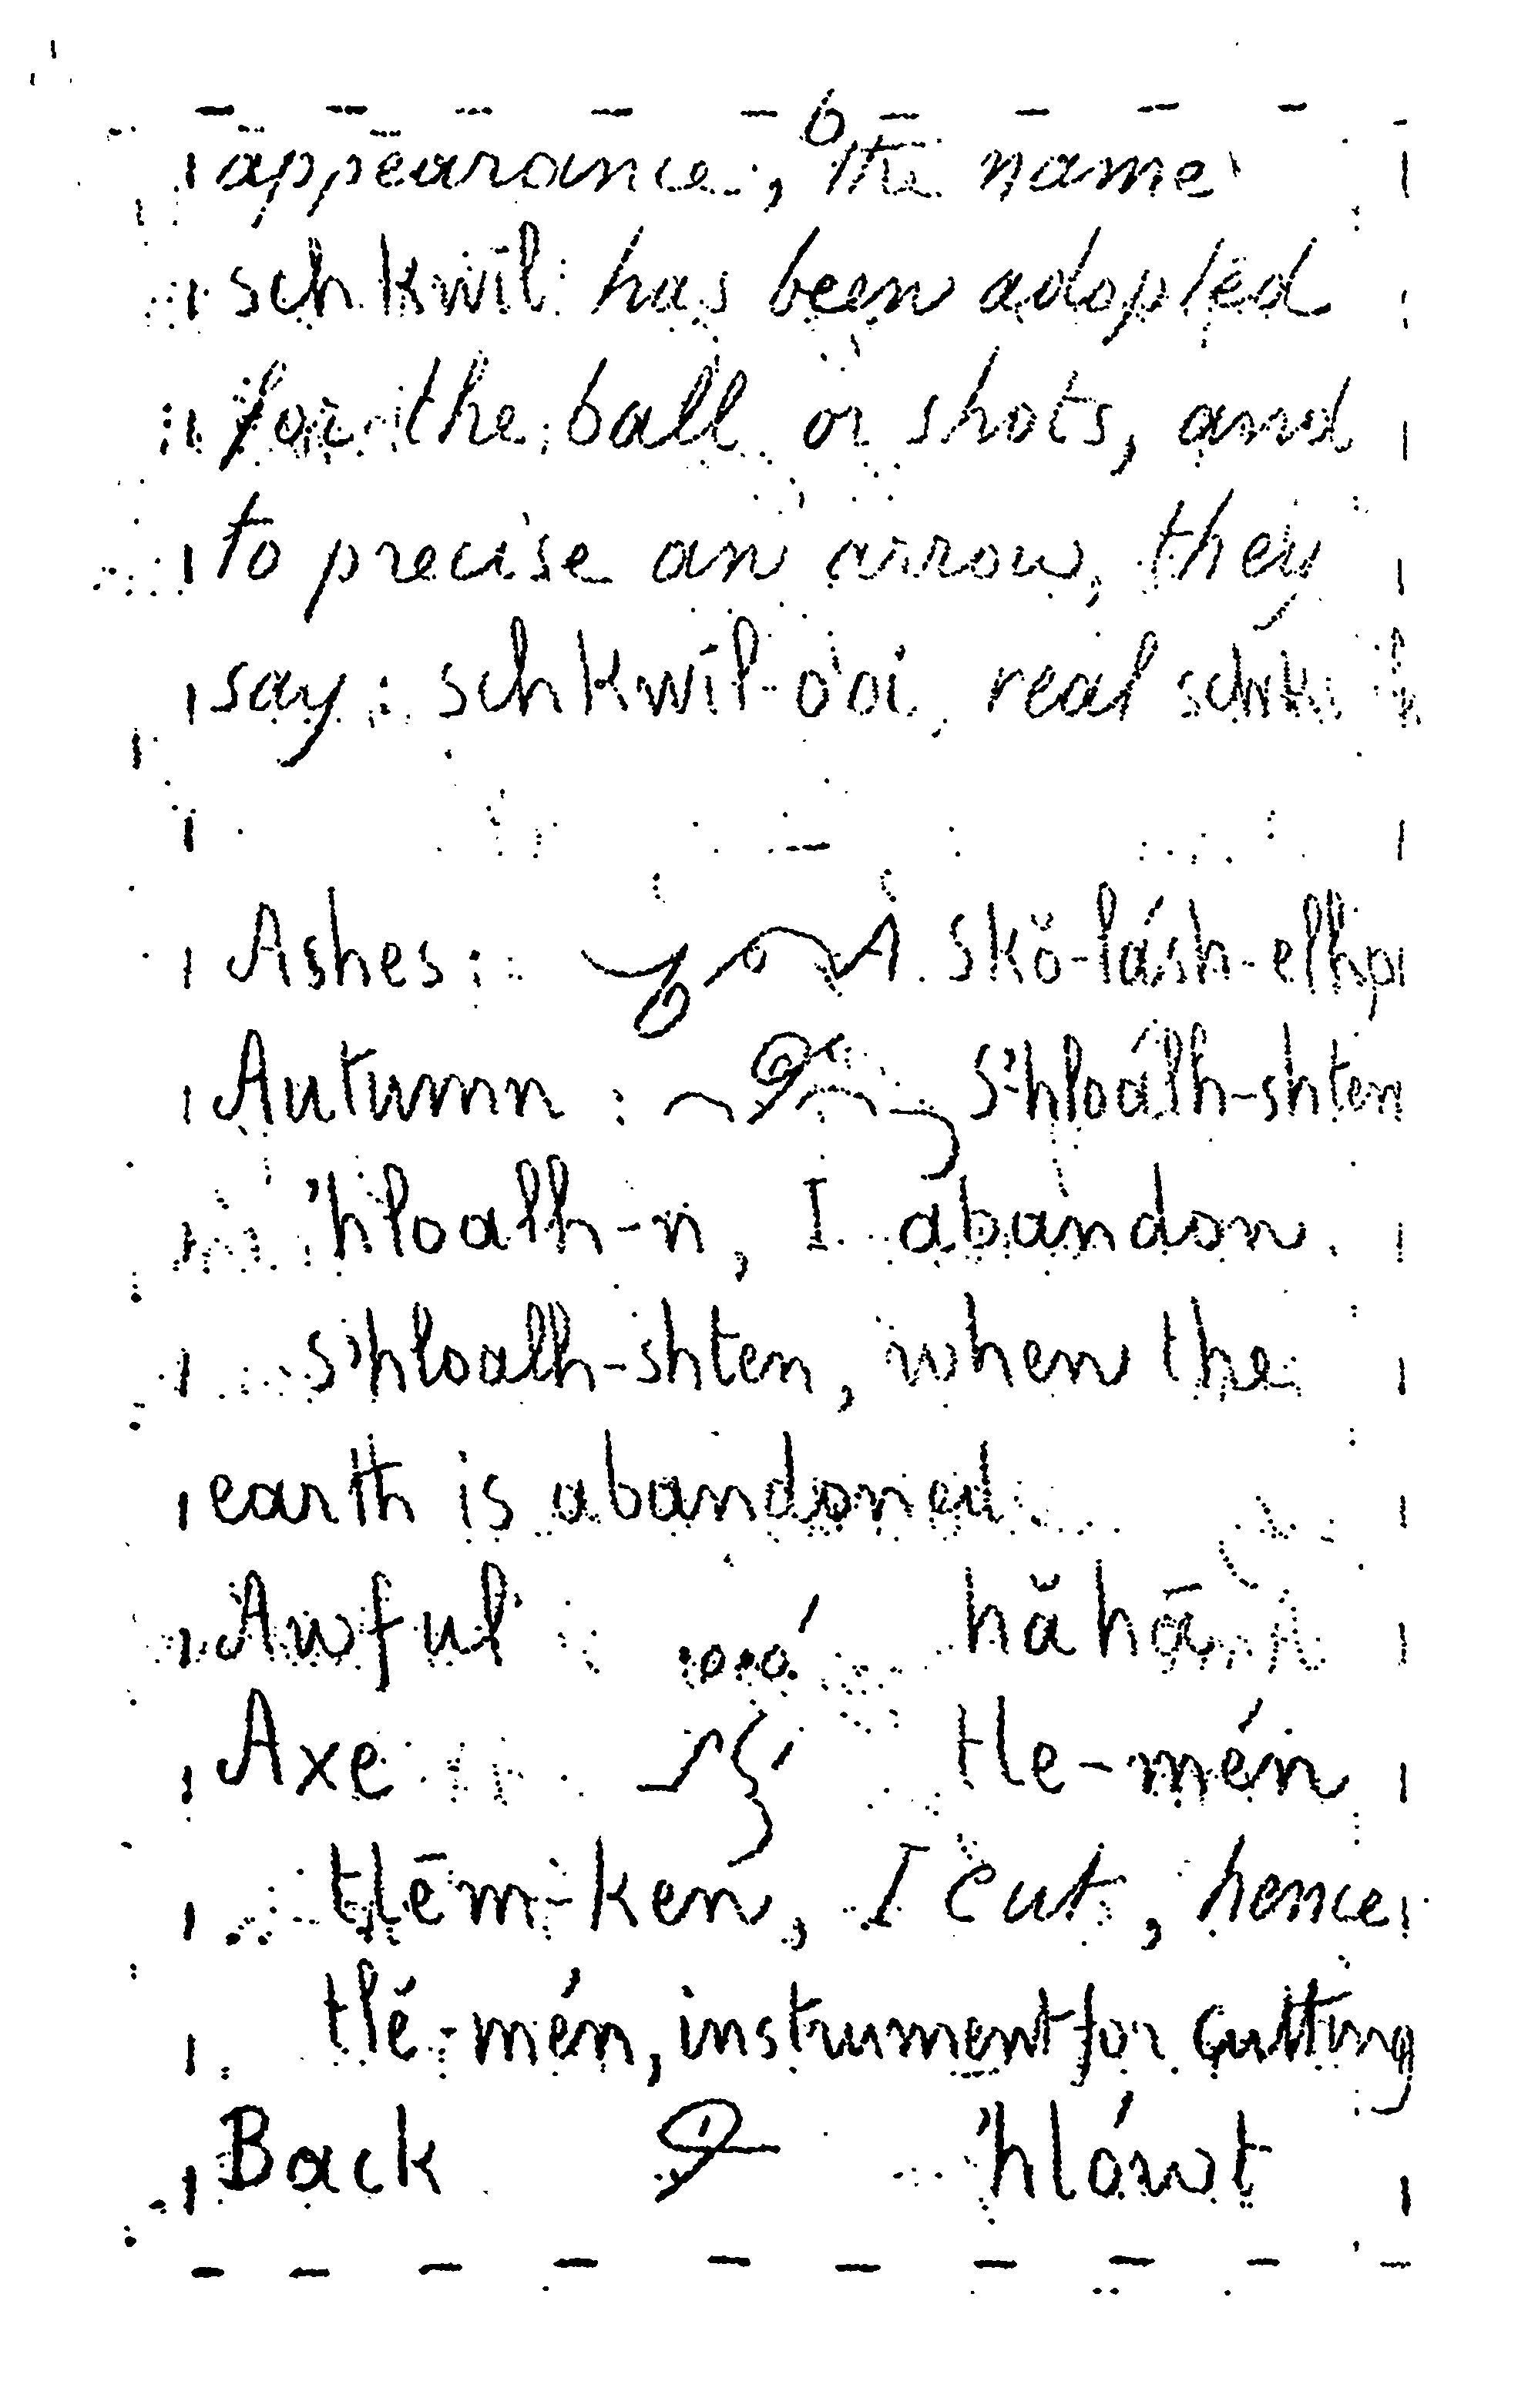 6
appearance, the name
schkwīl has been adopted
for the ball or shots, and
to precise an arrow, they
say: schkwíl-oòi, real
Ashes: Skŏ-lásh-elhp
Autumn: S'hloálh-shten
'hloalh-n, I abandon.
s'hloalh-shten, when the
earth is abandoned
Awful hăhā
Axe tle-mén
tlēm-ken, I cut, hence
tlĕ-mén, instrument for cutting
Back 'hlówt